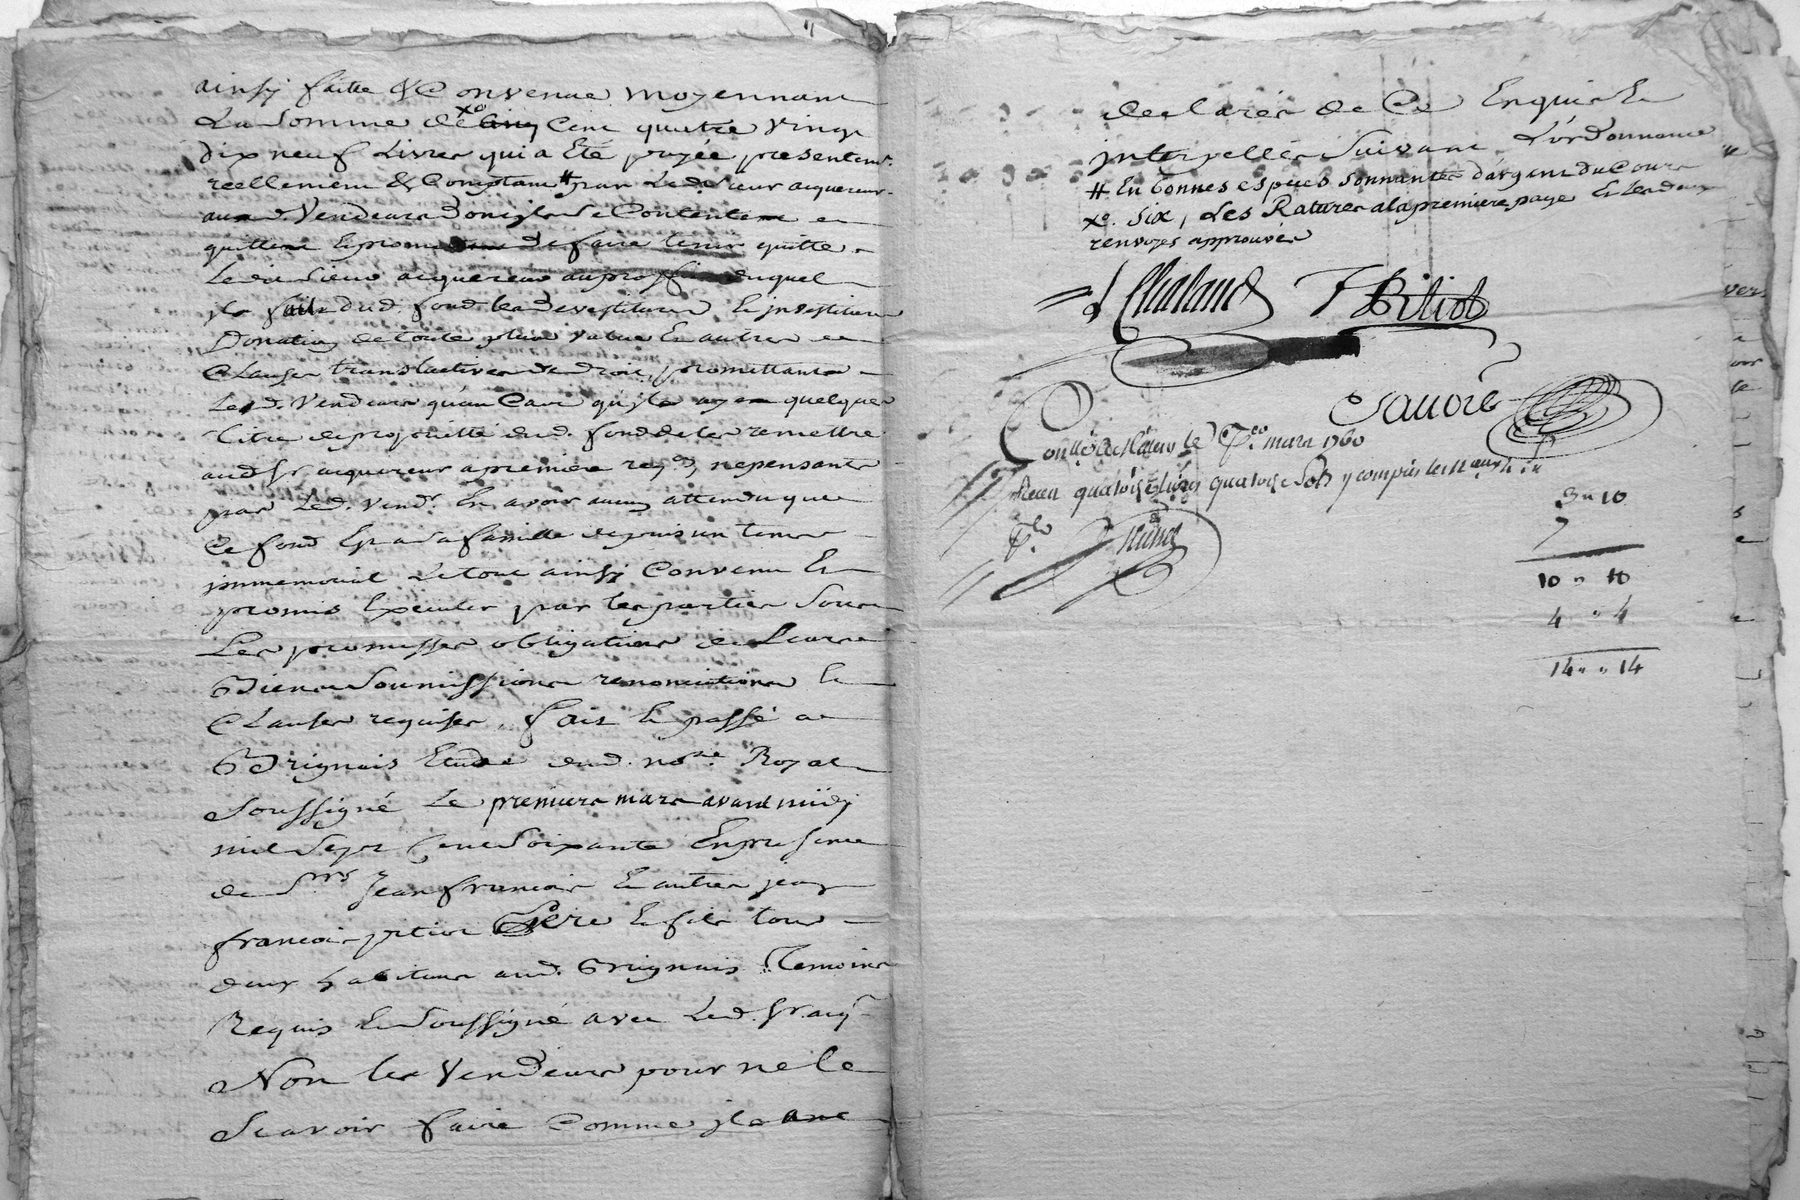 ainsy faitte & Convenue moyennant
La Somme de xo Cinq Cent quatre vingt
Dix neuf Livres qui a Eté payée presentemt.
reellement & Comptant # par Led. Sieur acquereur
aux d. Vendeurs Donc ils Se Contentent en
quittent & promettent de faire tenir quitte
Led. Sieur acquereur au proffit duquel
ils font dud. fond les devestitures & investitures
Donation de toute plus value & autres
Clauses translatives de droit, promettants
Les d. Vendeurs qu'au Cas qu'ils ayent quelques
titres de proprietté dud. fond de les remettre
aud. Sr. acquereur a premiere reqon, ne pensants
pas Led. Vendr. En avoir aucun attendu que
Ce fond Est a Sa famille depuis un temps
immemorial Le tout ainsy Convenu Et
promis Executer par les parties Sous
Les promesses obligations de Leurs
Biens Soumissions renonciations &
Clauses requises, fait & passé a
Brignais Etude dud. nore. Royal
Soussigné Le premier mars avant midy
mil Sept Cent Soixante En presence
de Srs Jean francois & autre jean
francois père & fils tous
deux habitans aud. Brignais Temoins
Requis & Soussigné avec Led. Sr. acqr
Non les Vendeurs pour ne le
Scavoir faire Comme ils ont
declarés de Ce Enquis &
interpellés Suivant L'ordonnance
# En bonnes especes Sonnantes d'argent du Cours
xo. Six, Les Ratures a la premiere page Et les deux
renvoyes approuvés
Chaland F Biliot
Sauore
Conllé le Pr. mars 1760
Receu quatorze Livres quatorze Sols y compris les
3 " 10
7
10 " 10
4 " 4
14 " " 14